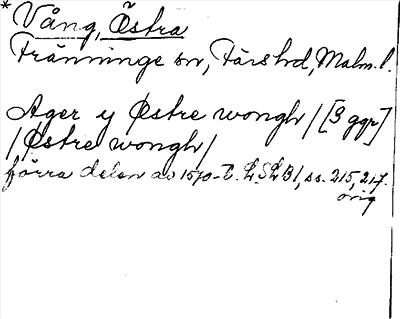 * Vång, Östra
Fränninge sn, Färs hd, Malm. l.
Ager y Østre wongh / [3 ggr]
/ Østre wongh /
förra delen av 1570-t. L.S.L B 1, ss. 215, 217.
orig